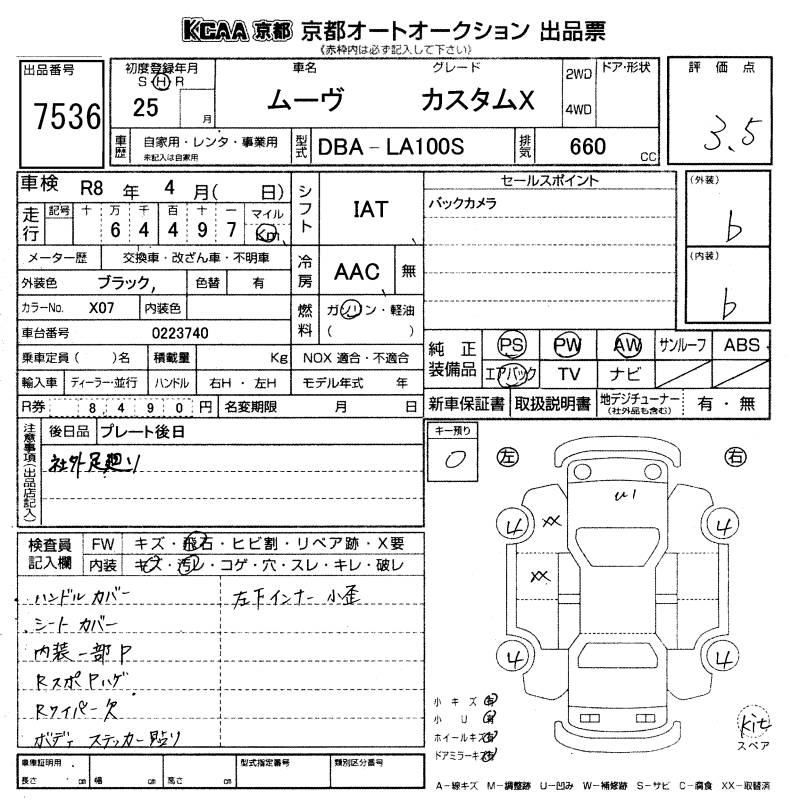 KCAA 京都 京都オートオークション 出品票
《赤枠内は必ず記入して下さい》
出品番号
7536
初度登録年月
S H R
25 月
車名
ムーヴ
グレード
カスタムX
2WD
4WD
ドア・形状
評価点
3.5
車歴
自家用・レンタ・事業用
未記入は自家用
型式
DBA-LA100S
排気
660 cc
車検 R8 年 4 月( 日)
走行
記号 十 万 千 百 十 一 マイル
6 4 4 9 7 Km
シフト
IAT
セールスポイント
バックカメラ
(外装)
b
(内装)
b
メーター歴 交換車・改ざん車・不明車
外装色 ブラック, 色替 有
冷房
AAC 無
カラーNo. X07 内装色
燃料
ガソリン・軽油
( )
車台番号 0223740
乗車定員( )名 積載量 Kg NOX 適合・不適合
輸入車 ディーラー・並行 ハンドル 右H・左H モデル年式 年
R券 8,490円 名変期限 月 日
純正装備品
PS PW AW サンルーフ ABS
エアバック TV ナビ
新車保証書 取扱説明書 地デジチューナー(社外品も含む) 有・無
注意事項(出品店記入)
後日品 プレート後日
社外足廻り
キー預り
0
左 右
U1
XX
XX
4 4
4 4
検査員記入欄
FW キズ・飛石・ヒビ割・リペア跡・X要
内装 キズ・汚レ・コゲ・穴・スレ・キレ・破レ
ハンドルカバー 左下インナー小歪
シートカバー
内装一部P
RスポPハゲ
Rワイパー欠
ボディステッカー貼り
小キズ 有
小U 有
ホイールキズ 有
ドアミラーキズ 有
kit
スペア
車庫証明用 型式指定番号 類別区分番号
長さ cm 幅 cm 高さ cm
A-線キズ M-調整跡 U-凹み W-補修跡 S-サビ C-腐食 XX-取替済